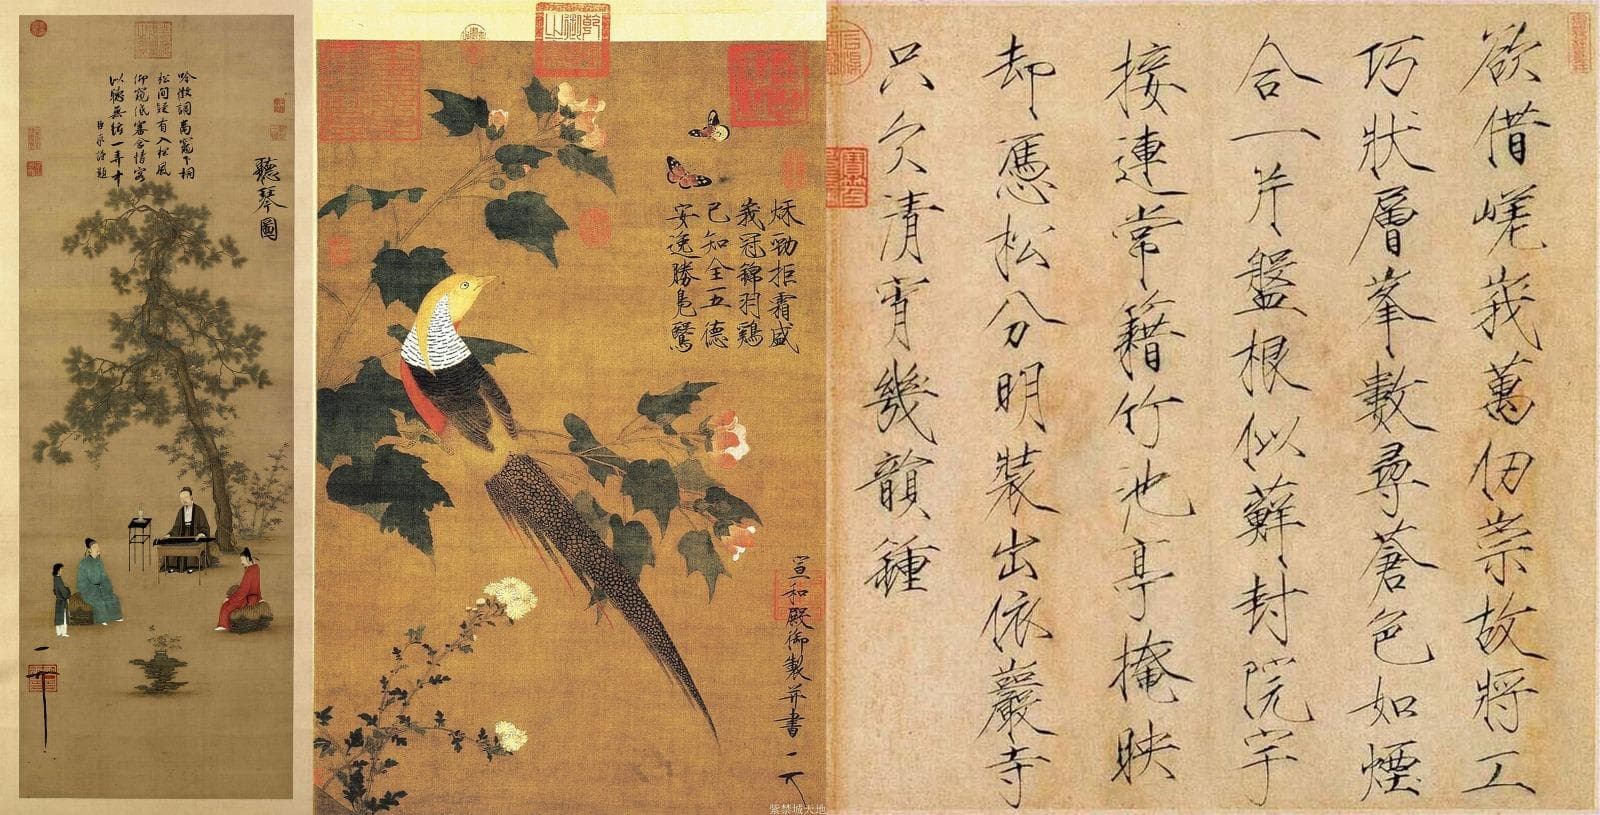 聽琴圖
吟徵調商竈下桐
松間疑有入松風
仰窺低審含情客
以聽無絃一弄中
臣京謹題
秋勁拒霜盛
峩冠錦羽鷄
已知全五德
安逸勝鳧鷖
宣和殿御製并書
紫禁城天地
欲借嵯峩萬仞崇故將工
巧狀層峯數尋蒼色如煙
合一片盤根似蘚封院宇
接連常籍竹池亭掩映
却憑松分明裝出依巖寺
只欠清宵幾韻鍾